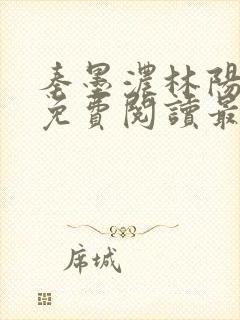 秦墨濃林陽
免費閱讀最
席城